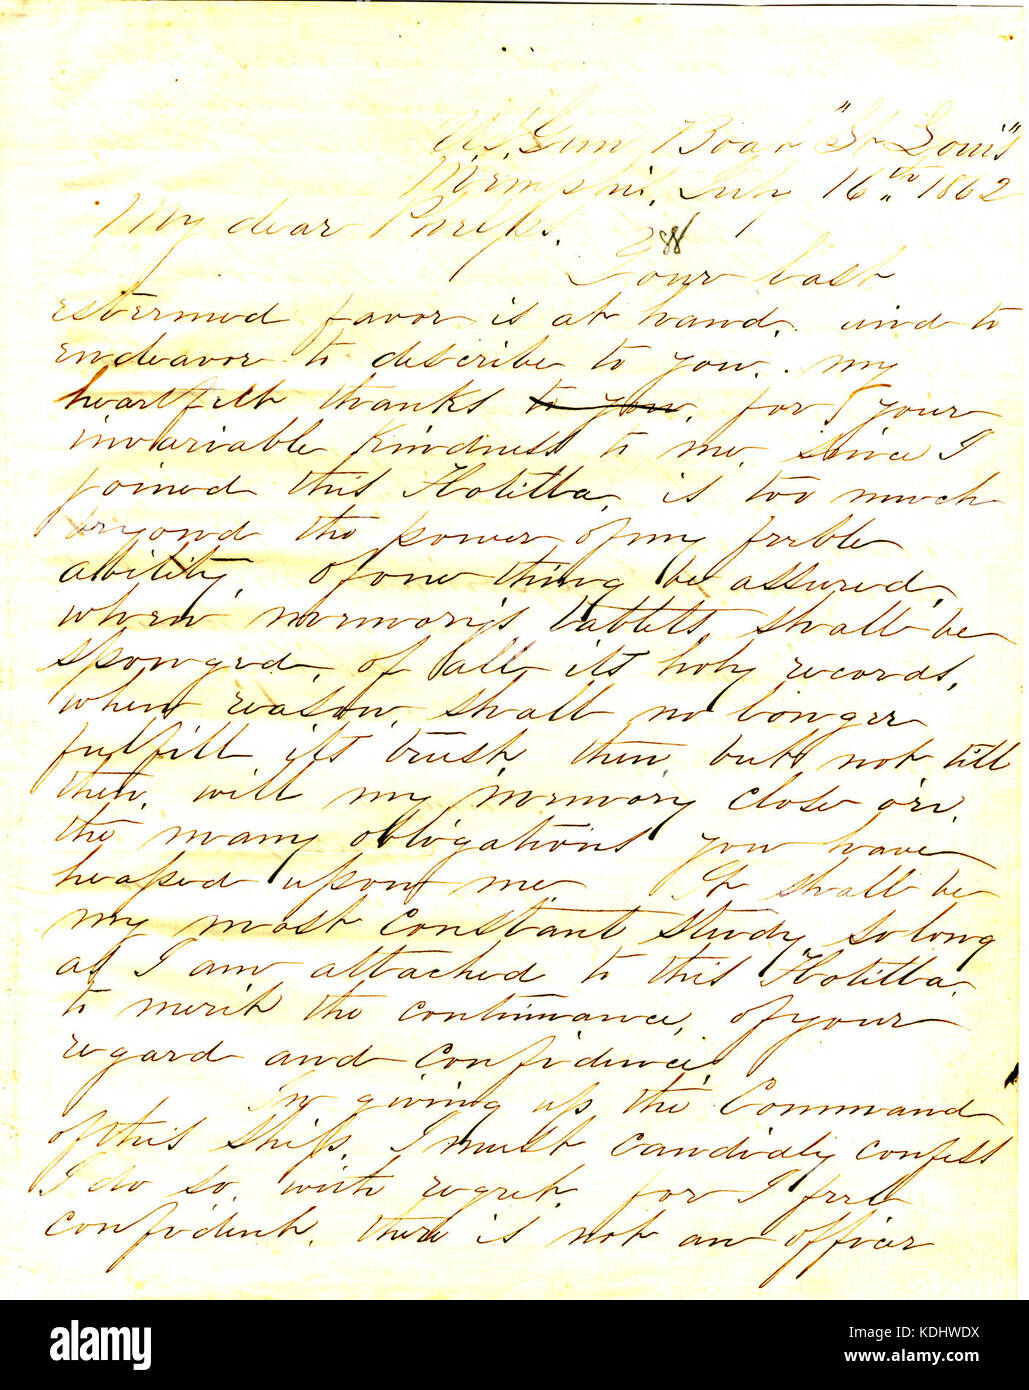 U.S. Gun Boat "St Louis"
Memphis, July 16th 1862
My dear
288
Your last
esteemed favor is at hand. and to
endeavor to describe to you.. my
heartfelt thanks to you, for your
invariable kindness to me, since I
joined this Flotilla, is too much
beyond the power of my feeble
ability, of one thing be assured,
when memory's tablets, shall be
sponged, of all its holy records,
when reason, shall no longer
fulfill its trust, then but not till
then, will my memory close on,
the many obligations you have
heaped upon me It shall be
my most constant study, so long
as I am attached to this Flotilla,
to merit the continuance, of your
regard and confidence.
In giving up the Command
of this Ship, I must candidly confess
I do so, with regret, for I feel
confident, there is not an officer
alamy
Image ID: KDHWDX
www.alamy.com